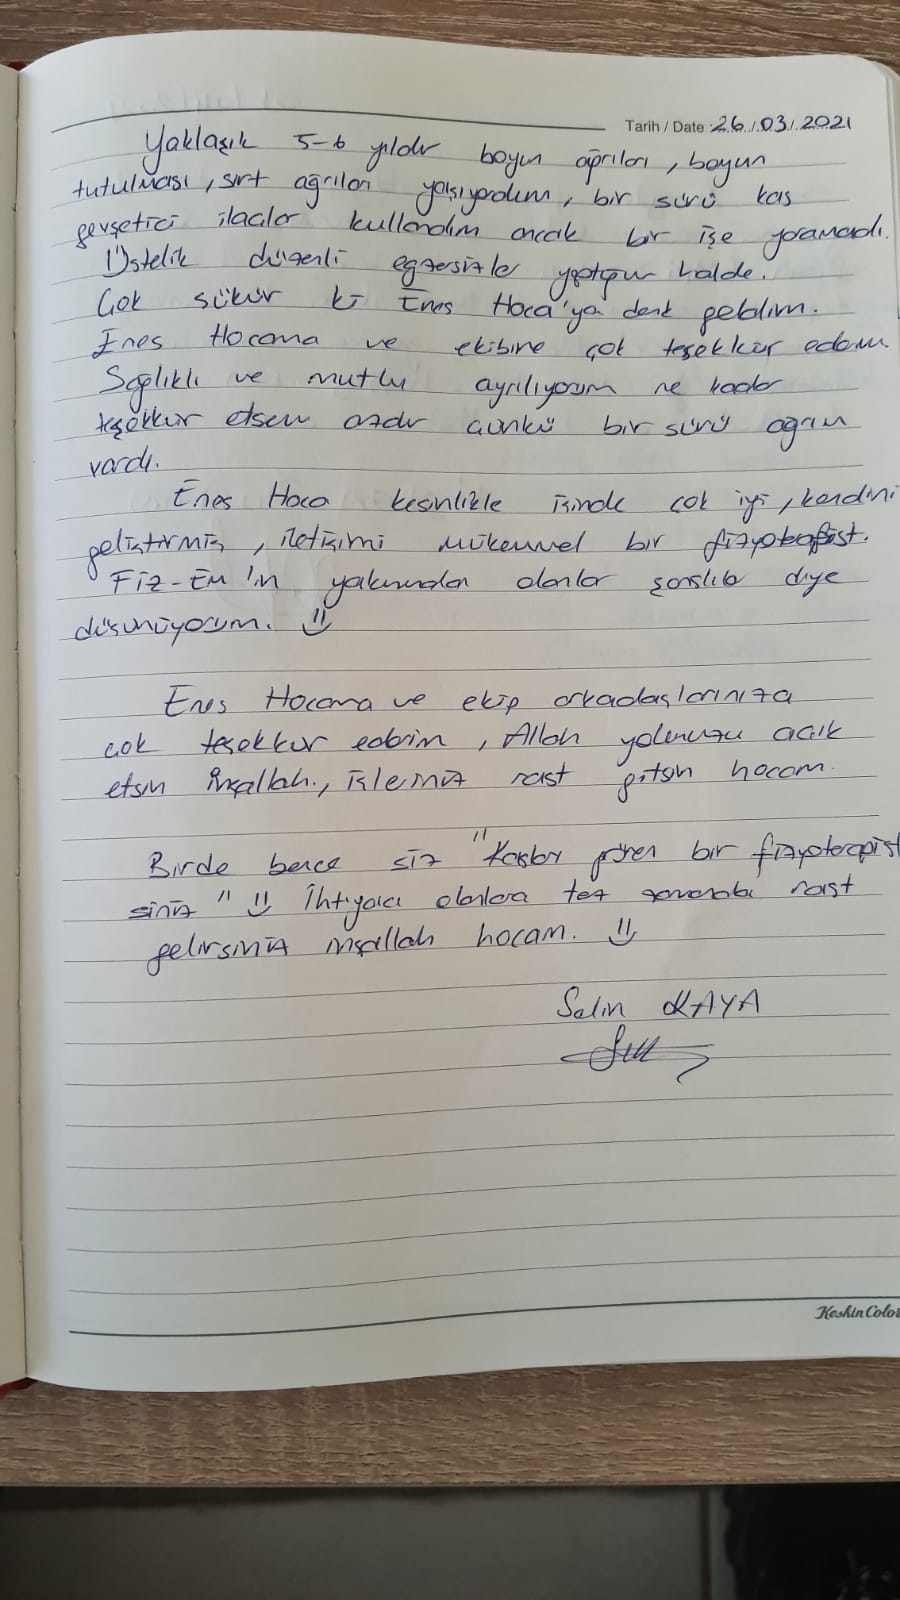 Tarih / Date : 26/03/2021
Yaklaşık 5-6 yıldır boyun ağrıları, boyun
tutulması, sırt ağrıları yaşıyordum, bir sürü kas
gevşetici ilaçlar kullandım ancak bir işe yaramadı.
Üstelik düzenli egzersizler yaptığım halde.
Çok şükür ki Enes Hoca'ya denk geldim.
Enes Hocama ve ekibine çok teşekkür ederim.
Sağlıklı ve mutlu ayrılıyorum ne kadar
teşekkür etsem azdır çünkü bir sürü ağrım
vardı.
Enes Hoca kesinlikle işinde çok iyi, kendini
geliştirmiş, iletişimi mükemmel bir fizyoterapist.
Fiz-Em'in yakınından olanlar şanslılar diye
düşünüyorum.
Enes Hocama ve ekip arkadaşlarınıza
çok teşekkür ederim, Allah yolunuzu açık
etsin inşallah., işleriniz rast gitsin hocam.
Birde bence siz "Kasları gören bir fizyoterapist
siniz" İhtiyacı olanlara tez zamanda rast
gelirsiniz inşallah hocam.
Selin KAYA
KeskinColor